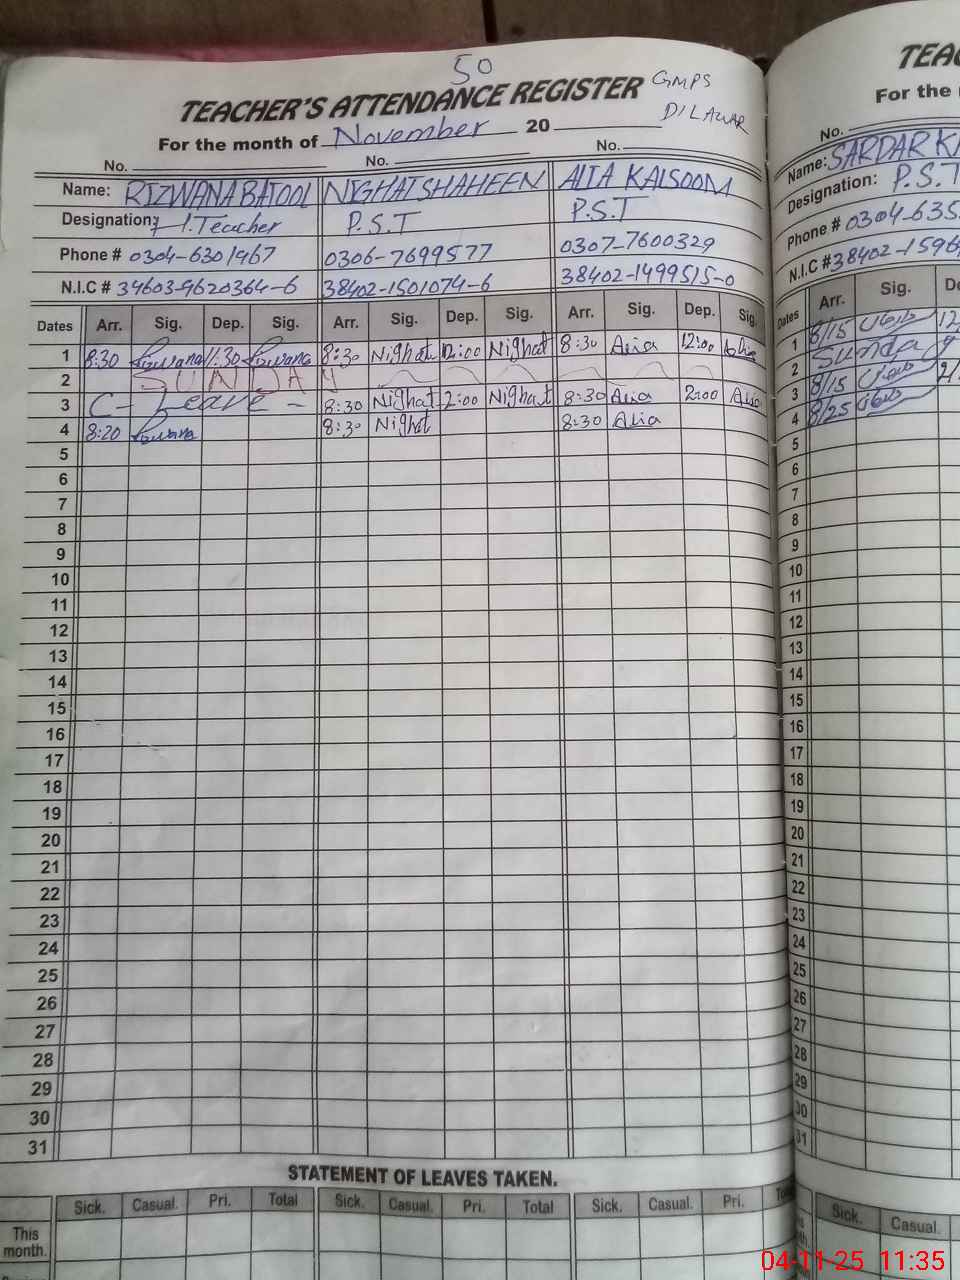 50
TEACHER'S ATTENDANCE REGISTER GMPS
DILAWAR
For the month of November 20
No. No. No.
Name: RIZWANA BATOOL NIGHAT SHAHEEN ALIA KALSOOM
Designation: H.Teacher P.S.T P.S.T
Phone # 0304-6301967 0306-7699577 0307-7600329
N.I.C # 34603-9620364-6 38402-1501074-6 38402-1499515-0
Dates Arr. Sig. Dep. Sig. Arr. Sig. Dep. Sig. Arr. Sig. Dep. Sig.
1 8:30 Rizwana 11:30 Rizwana 8:30 Nighat 12:00 Nighat 8:30 Alia 12:00 Alia
2 SUNDAY
3 C- Leave - 8:30 Nighat 2:00 Nighat 8:30 Alia 2:00 Alia
4 8:20 Rizwana 8:30 Nighat 8:30 Alia
5
6
7
8
9
10
11
12
13
14
15
16
17
18
19
20
21
22
23
24
25
26
27
28
29
30
31
STATEMENT OF LEAVES TAKEN.
Sick. Casual. Pri. Total Sick. Casual. Pri. Total Sick. Casual. Pri.
This
month.
TEAC
For the
No.
Name: SARDAR K
Designation: P.S.T
Phone # 0304-635
N.I.C # 38402-1596
Dates Arr. Sig. De
1 8/15 12
2 Sunday
3 8/15 2
4 8/25
5
6
7
8
9
10
11
12
13
14
15
16
17
18
19
20
21
22
23
24
25
26
27
28
29
30
31
Sick. Casual.
04-11-25 11:35